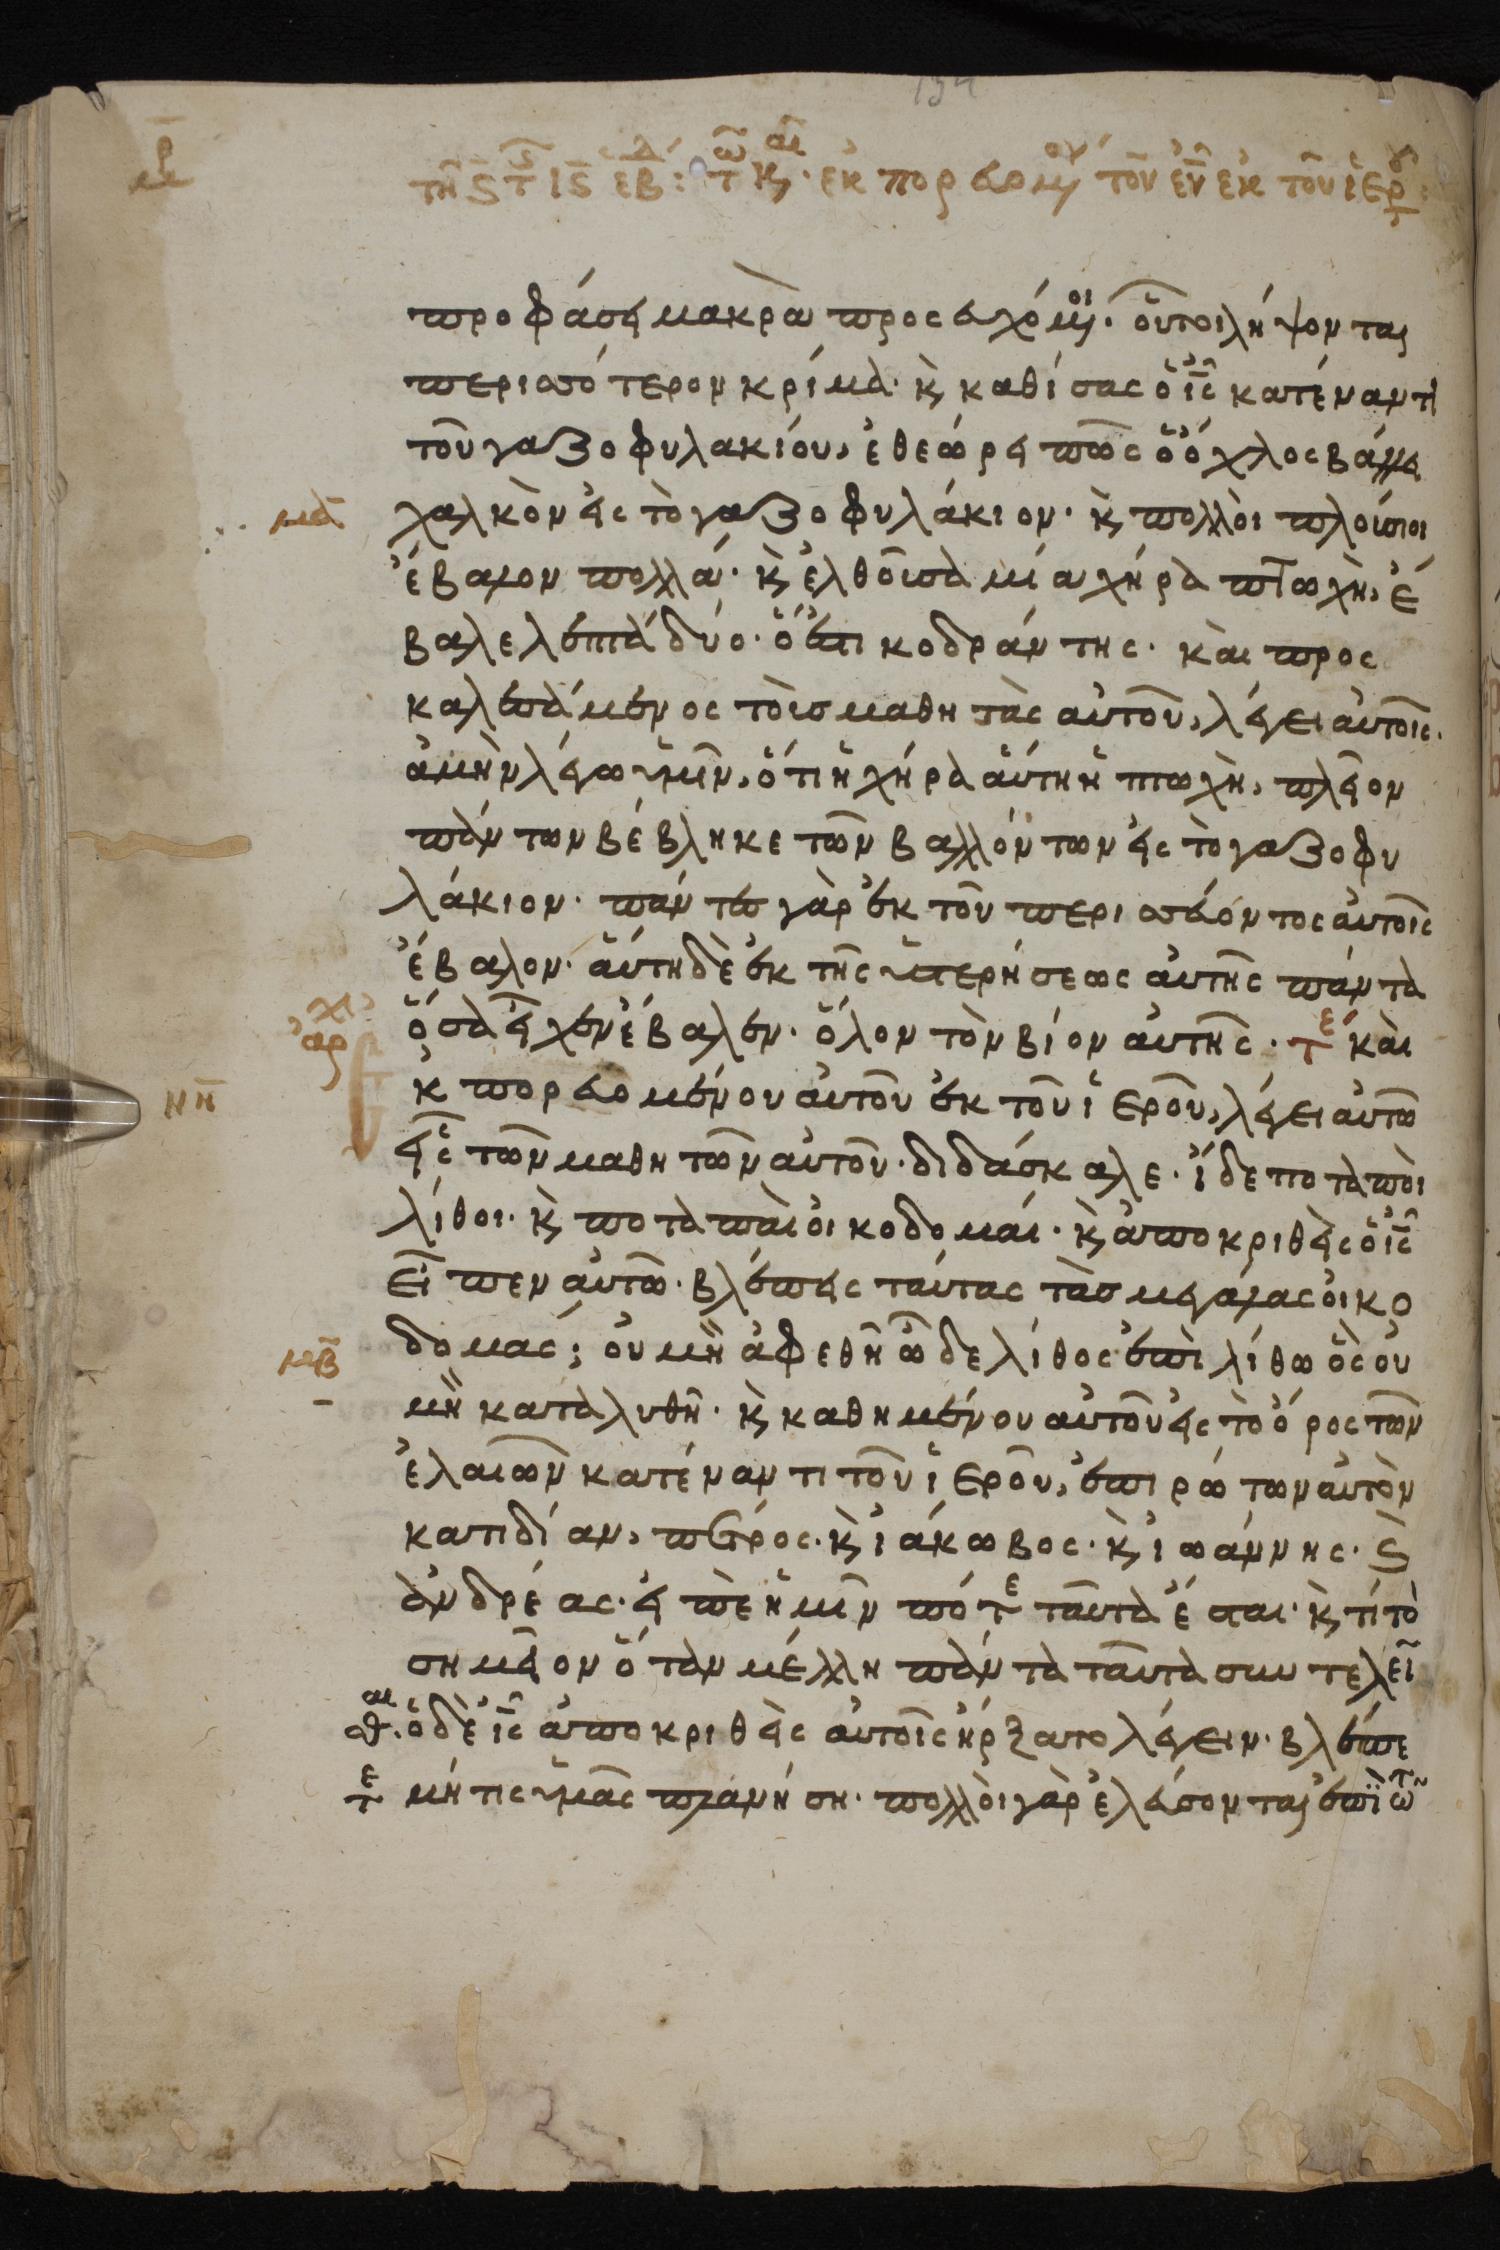 προφάσει μακρὰ προσευχόμενοι. οὗτοι λήψονται
περισσότερον κρίμα. κ καθίσας ὁ ις κατέναντι
τοῦ γαζοφυλακίου, ἐθεώρει πῶς ὁ ὄχλος βάλλει
μα χαλκὸν εἰς τὸ γαζοφυλάκιον. κ πολλοὶ πλούσιοι
ἔβαλον πολλά. κ ἐλθοῦσα μία χήρα πτωχὴ, ἔ
βαλε λεπτὰ δύο. ὅ ἐστι κοδράντης. καὶ προς
καλεσάμενος τοὺσ μαθητὰς αὐτοῦ, λέγει αὐτοῖς.
ἀμὴν λέγω ὑμῖν, ὅτι ἡ χήρα αὕτη ἡ πτωχὴ, πλεῖον
πάντων βέβληκε τῶν βαλλόντων εἰς τὸ γαζοφυ
λάκιον. πάντες γὰρ ἐκ τοῦ περισσεύοντος αὐτοῖς
ἔβαλον. αὕτη δὲ ἐκ τῆς ὑστερήσεως αὐτῆς πάντα
ὅσα εἶχεν ἔβαλεν. ὅλον τὸν βίον αὐτῆς. τε καὶ
ἐκπορευομένου αὐτοῦ ἐκ τοῦ ἱεροῦ, λέγει αὐτῶ
εἷς τῶν μαθητῶν αὐτοῦ. διδάσκαλε. ἴδε ποταποὶ
λίθοι. κ ποταπαὶ οἰκοδομαί. κ ἀποκριθεὶς ὁ ις
εἶπεν αὐτῶ. βλέπεις ταύτας τὰσ μεγάλας οἰκο
μβ δομάς; οὐ μὴ ἀφεθῆ ὧδε λίθος ἐπὶ λίθω ὃς οὐ
μὴ καταλυθῆ. κ καθημένου αὐτοῦ εἰς τὸ ὄρος τῶν
ἐλαιῶν κατέναντι τοῦ ἱεροῦ, ἐπιρώτων αὐτὸν
κατιδίαν, πέτρος. κ ἰάκωβος. κ ἰωάννης. κ
ἀνδρέας. εἰπὲ ἡμῖν πότε ταῦτα ἔσται. κ τί τὸ
σημεῖον ὅταν μέλλη πάντα ταῦτα συντελεῖ
σθαι. ὁ δὲ ις ἀποκριθεὶς αὐτοῖς ἤρξατο λέγειν. βλέπε
τε μή τις ὑμᾶς πλανήση. πολλοὶ γὰρ ἐλεύσονται ἐπὶ τῶ